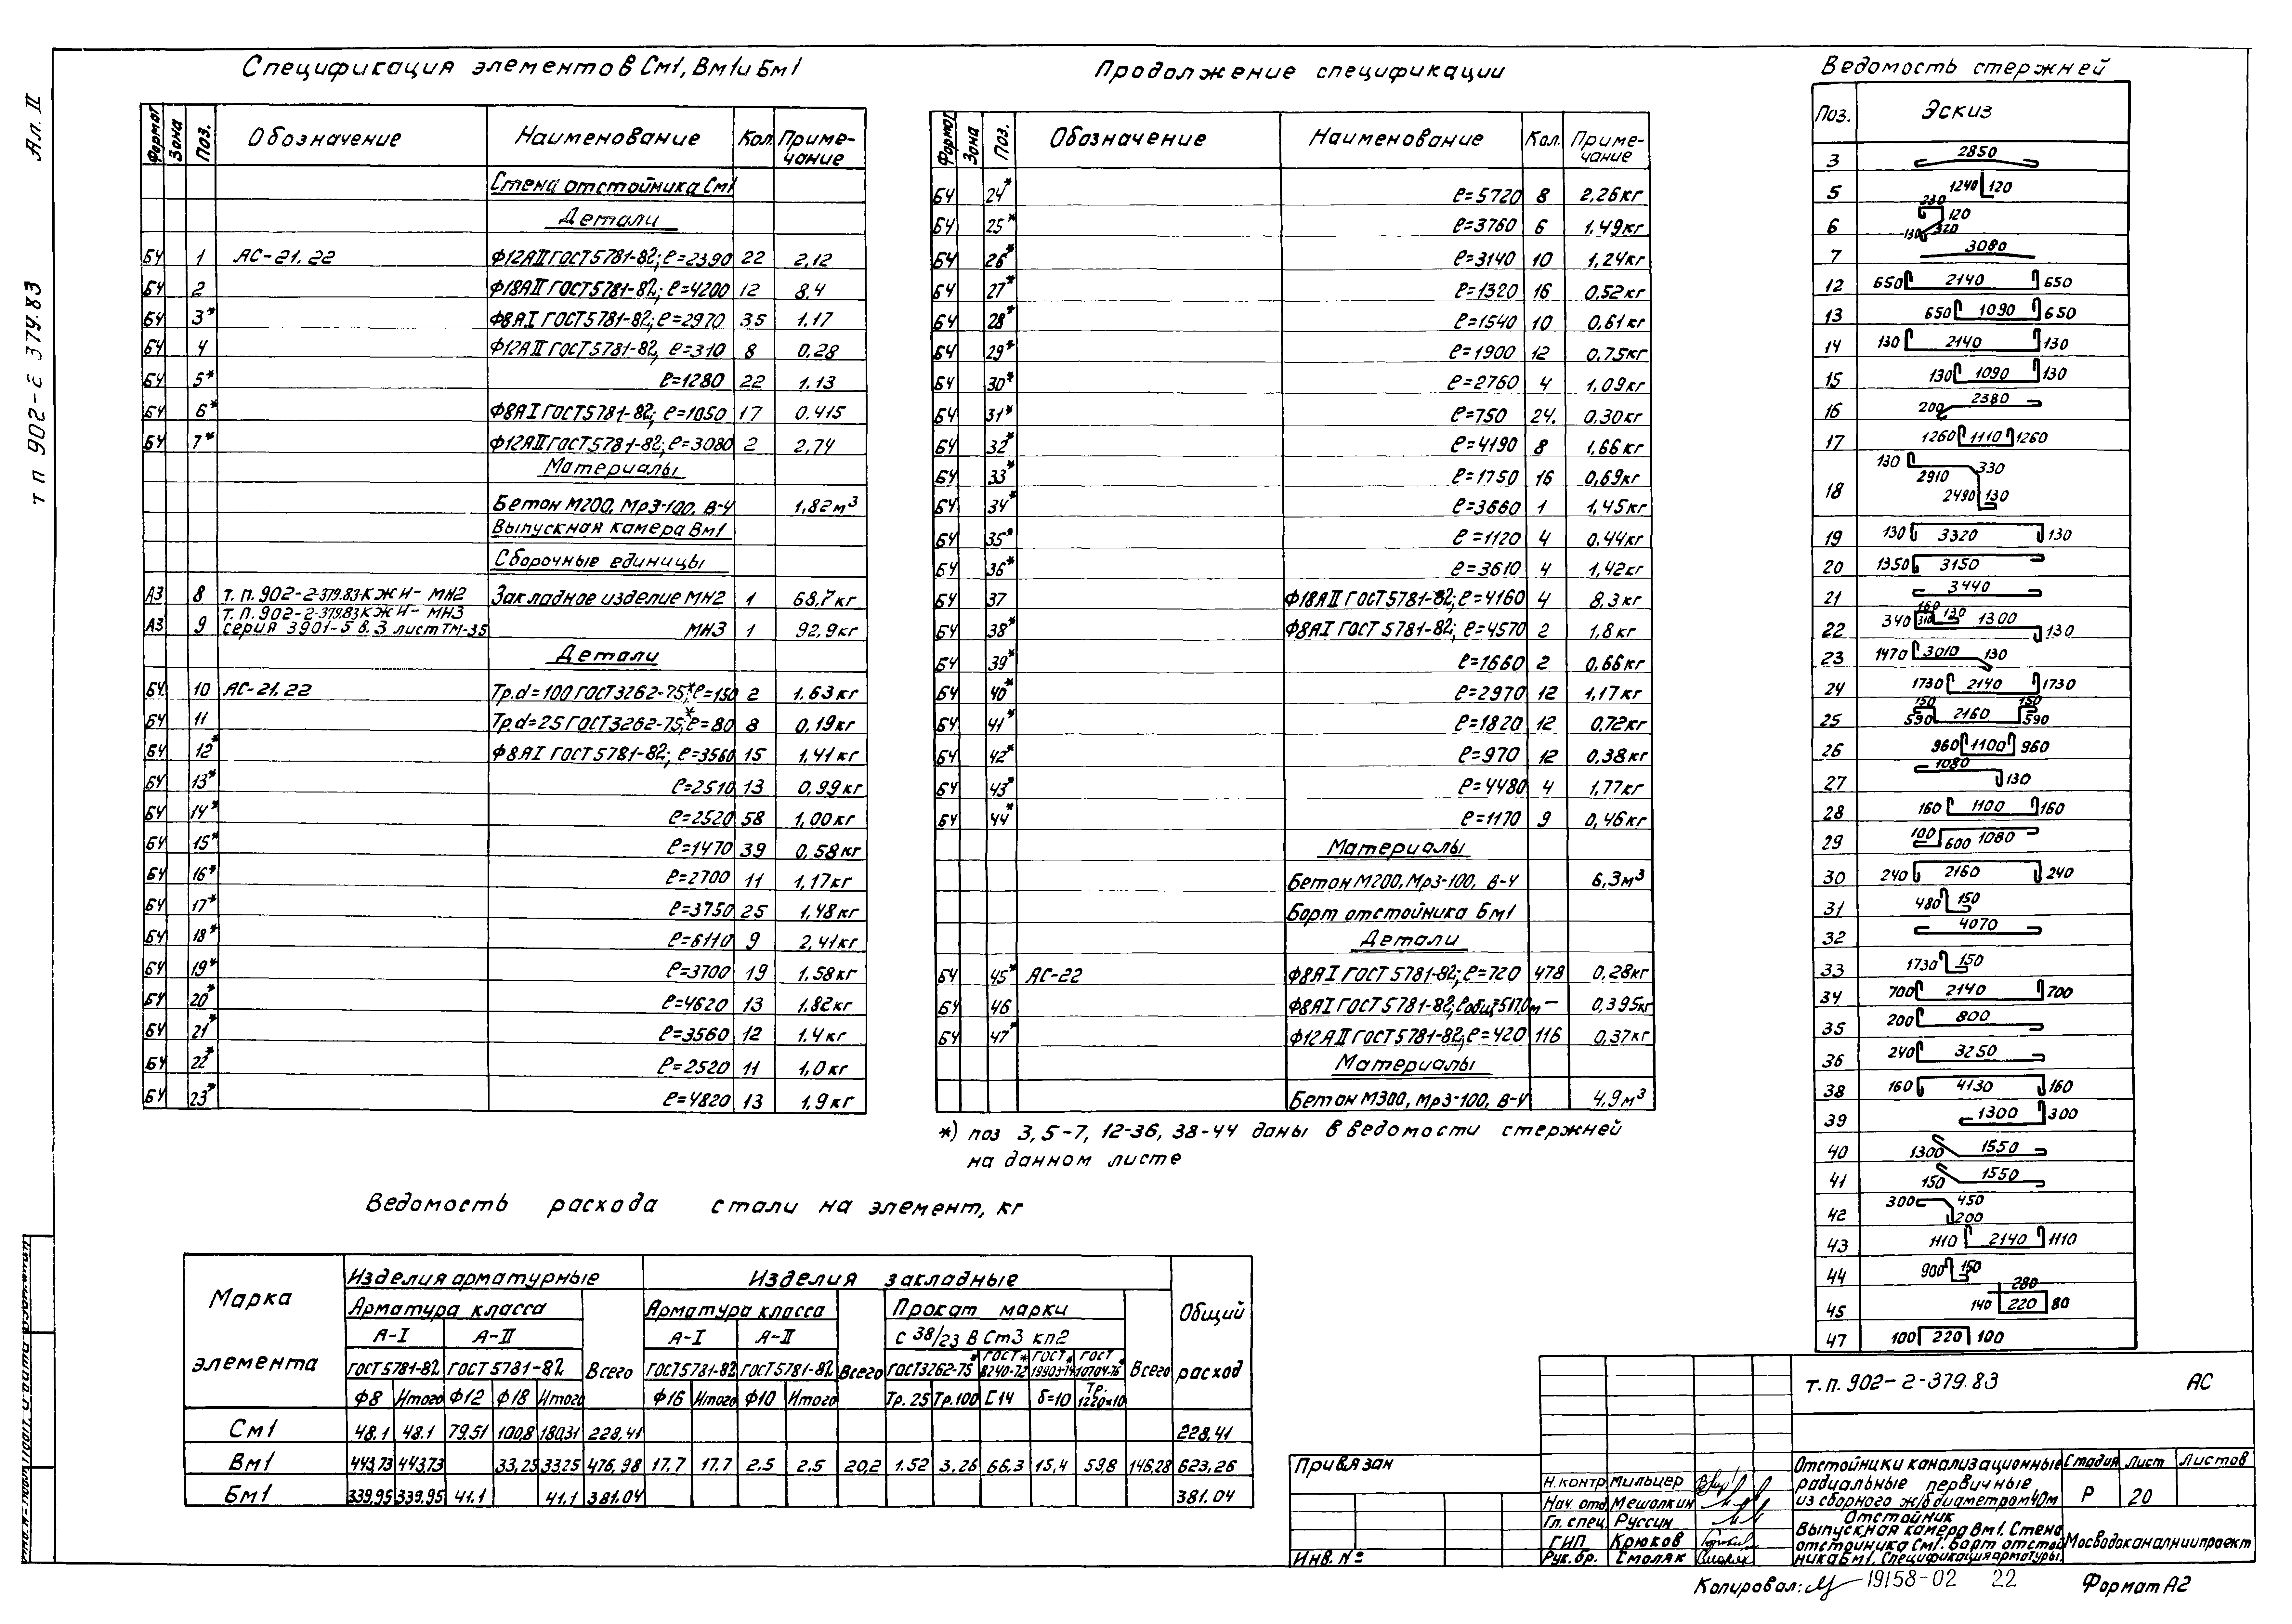 Ал. II
тп 902-2 379.83
Спецификация элементов См1, Вм1 и Бм1
Формат Зона Поз. Обозначение Наименование Кол. Примечание
Стена отстойника См1
Детали
БЧ 1 АС-21.22 Ф12АII ГОСТ 5781-82; ℓ=2390 22 2,12
БЧ 2 Ф18АII ГОСТ 5781-82; ℓ=4200 12 8.4
БЧ 3* Ф8АI ГОСТ 5781-82; ℓ=2970 35 1.17
БЧ 4 Ф12АII ГОСТ 5781-82, ℓ=310 8 0.28
БЧ 5* ℓ=1280 22 1.13
БЧ 6* Ф8АI ГОСТ 5781-82; ℓ=1050 17 0.415
БЧ 7* Ф12АII ГОСТ 5781-82; ℓ=3080 2 2,74
Материалы
Бетон М200, Мрз-100, В-4 1,82м³
Выпускная камера Вм1
Сборочные единицы
А3 8 т.п. 902-2-379.83-КЖИ-МН2 Закладное изделие МН2 1 68,7кг
А3 9 т.п. 902-2-379.83КЖИ-МН3
серия 3901-5 в.3 лист ТМ-35 МН3 1 92.9кг
Детали
БЧ 10 АС-21.22 Тр.d=100 ГОСТ3262-75*; ℓ=150 2 1.63кг
БЧ 11 Тр.d=25 ГОСТ3262-75*; ℓ=80 8 0,19кг
БЧ 12* Ф8АI ГОСТ 5781-82; ℓ=3560 15 1,41кг
БЧ 13* ℓ=2510 13 0,99кг
БЧ 14* ℓ=2520 58 1,00кг
БЧ 15* ℓ=1470 39 0,58кг
БЧ 16* ℓ=2700 11 1,17кг
БЧ 17* ℓ=3750 25 1,48кг
БЧ 18* ℓ=6110 9 2,41кг
БЧ 19* ℓ=3700 19 1.58кг
БЧ 20* ℓ=4620 13 1.82кг
БЧ 21* ℓ=3560 12 1.4кг
БЧ 22* ℓ=2520 11 1,0кг
БЧ 23* ℓ=4820 13 1,9кг
Продолжение спецификации
Формат Зона Поз. Обозначение Наименование Кол. Примечание
БЧ 24* ℓ=5720 8 2,26кг
БЧ 25* ℓ=3760 6 1.49кг
БЧ 26* ℓ=3140 10 1,24кг
БЧ 27* ℓ=1320 16 0,52кг
БЧ 28* ℓ=1540 10 0,61кг
БЧ 29* ℓ=1900 12 0,75кг
БЧ 30* ℓ=2760 4 1.09кг
БЧ 31* ℓ=750 24. 0.30кг
БЧ 32* ℓ=4190 8 1,66кг
БЧ 33* ℓ=1750 16 0,69кг
БЧ 34* ℓ=3660 1 1,45кг
БЧ 35* ℓ=1120 4 0.44кг
БЧ 36* ℓ=3610 4 1,42кг
БЧ 37 Ф18АII ГОСТ 5781-82; ℓ=4160 4 8,3кг
БЧ 38* Ф8АI ГОСТ 5781-82; ℓ=4570 2 1,8кг
БЧ 39* ℓ=1660 2 0,66кг
БЧ 40* ℓ=2970 12 1,17кг
БЧ 41* ℓ=1820 12 0,72кг
БЧ 42* ℓ=970 12 0,38кг
БЧ 43* ℓ=4480 4 1,77кг
БЧ 44* ℓ=1170 9 0,46кг
Материалы
Бетон М200, Мрз-100, В-4 6,3м³
Борт отстойника Бм1
Детали
БЧ 45* АС-22 Ф8АI ГОСТ 5781-82; ℓ=720 478 0,28кг
БЧ 46 Ф8АI ГОСТ 5781-82; ℓобщ=517,0м — 0,395кг
БЧ 47* Ф12АII ГОСТ 5781-82; ℓ=420 116 0,37кг
Материалы
Бетон М300, Мрз-100, В-4 4,9м³
*) поз 3, 5-7, 12-36, 38-44 даны в ведомости стержней
на данном листе
Ведомость стержней
Поз. Эскиз
3 2850
5 1240 120
6 230 120 130 320
7 3080
12 650 2140 650
13 650 1090 650
14 130 2140 130
15 130 1090 130
16 200 2380
17 1260 1110 1260
18 130 2910 330 2490 130
19 130 3320 130
20 1350 3150
21 3440
22 340 160 310 130 1300 130
23 1470 3010 130
24 1730 2140 1730
25 150 590 2160 150 590
26 960 1100 960
27 1080 130
28 160 1100 160
29 100 600 1080
30 240 2160 240
31 480 150
32 4070
33 1730 150
34 700 2140 700
35 200 800
36 240 3250
38 160 4130 160
39 1300 300
40 1300 1550
41 150 1550
42 300 450 200
43 1110 2140 1110
44 900 150
45 280 140 220 80
47 100 220 100
Ведомость расхода стали на элемент, кг
Марка элемента Изделия арматурные Изделия закладные Общий расход
Арматура класса Всего Арматура класса Всего Прокат марки Всего
А-I А-II А-I А-II с 38/23 ВСт3 кп2
ГОСТ 5781-82 ГОСТ 5781-82 ГОСТ 5781-82 ГОСТ 5781-82 ГОСТ3262-75* ГОСТ* 8240-72 ГОСТ* 19903-74 ГОСТ* 10704-76
Ф8 Итого Ф12 Ф18 Итого Ф16 Итого Ф10 Итого Тр.25 Тр.100 С14 δ=10 Тр. 1220×10
См1 48.1 48.1 79.51 100,8 180,31 228,41 228,41
Вм1 443,73 443,73 33,25 33,25 476,98 17.7 17.7 2.5 2.5 20,2 1.52 3,26 66,3 15,4 59,8 146,28 623,26
Бм1 339,95 339,95 41.1 41.1 381.04 381.04
Привязан
Инв. №
т.п. 902-2-379.83 АС
Н.контр. Мильцер
Нач. отд. Мешалкин
Гл. спец. Руссин
ГИП Крюков
Рук. бр. Смоляк
Отстойники канализационные
радиальные первичные
из сборного ж/б диаметром 40м
Стадия Лист Листов
Р 20
Отстойник
Выпускная камера Вм1. Стена
отстойника См1. Борт отстой
ника Бм1. Спецификация арматуры.
Мосводоканалниипроект
Копировал: 19158-02 22 Формат А2